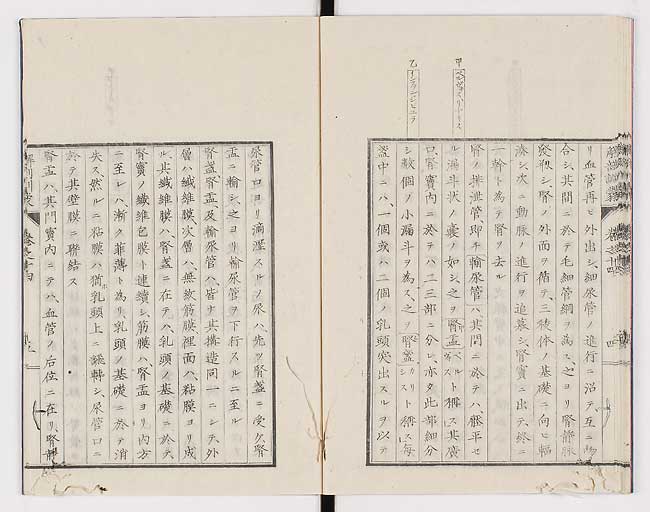 リ血管再ヒ外出シ、細尿管ノ進行ニ沿テ互ニ
合シ、其間ニ於テ毛細管網ヲ為ス、之ヨリ腎静脉
發私シ、腎ノ外面ヲ循テ、三稜体ノ基礎ニ向ヒ輻
湊シ、次ニ動脉ノ進行ヲ追募シ、腎竇ニ出テ、終ニ
一幹ト為テ腎ヲ去ル
腎ノ排泄管、即チ輸尿管ハ、其門ニ於テハ壓平セ
ル漏斗状ノ嚢ノ如シ、之ヲ腎盂ト稱ス其廣
口、腎竇内ニ於テハ二三部ニ分レ、亦タ此部細分
シ數個ノ小漏斗ヲ為ス、之ヲ腎盞カリストト稱ス毎
盞中ニハ、一個或ハ二個ノ乳頭突出スルヲ以テ
甲
乙
解剖訓蒙
尿管口ヨリ滴瀝スルノ尿ハ、先ツ腎盞ニ受ケ腎
盂ニ輸シ、之ヨリ輸尿管ヲ下行スルニ至ル
腎盞腎盂及輸尿管ハ、皆ナ其搆造同一ニシテ、外
層ハ纎維膜、次層ハ無紋筋膜、裡面ハ、粘膜ヨリ成
ル、其纎維膜ハ、腎盞ニ在テハ、乳頭ノ基礎ニ於テ、
腎竇ノ纎維包膜ト連續シ、筋膜ハ腎盂ヨリ内方
ニ至レハ漸ク菲薄ト為リ、乳頭ノ基礎ニ於テ消
失ス、然ルニ粘膜ハ猶ホ乳頭上ニ轉シ、尿管口ニ
於テ其壁膜ニ聯結ス
腎盂ハ、其門竇内ニテハ、血管ノ后位ニ在リ、腎静